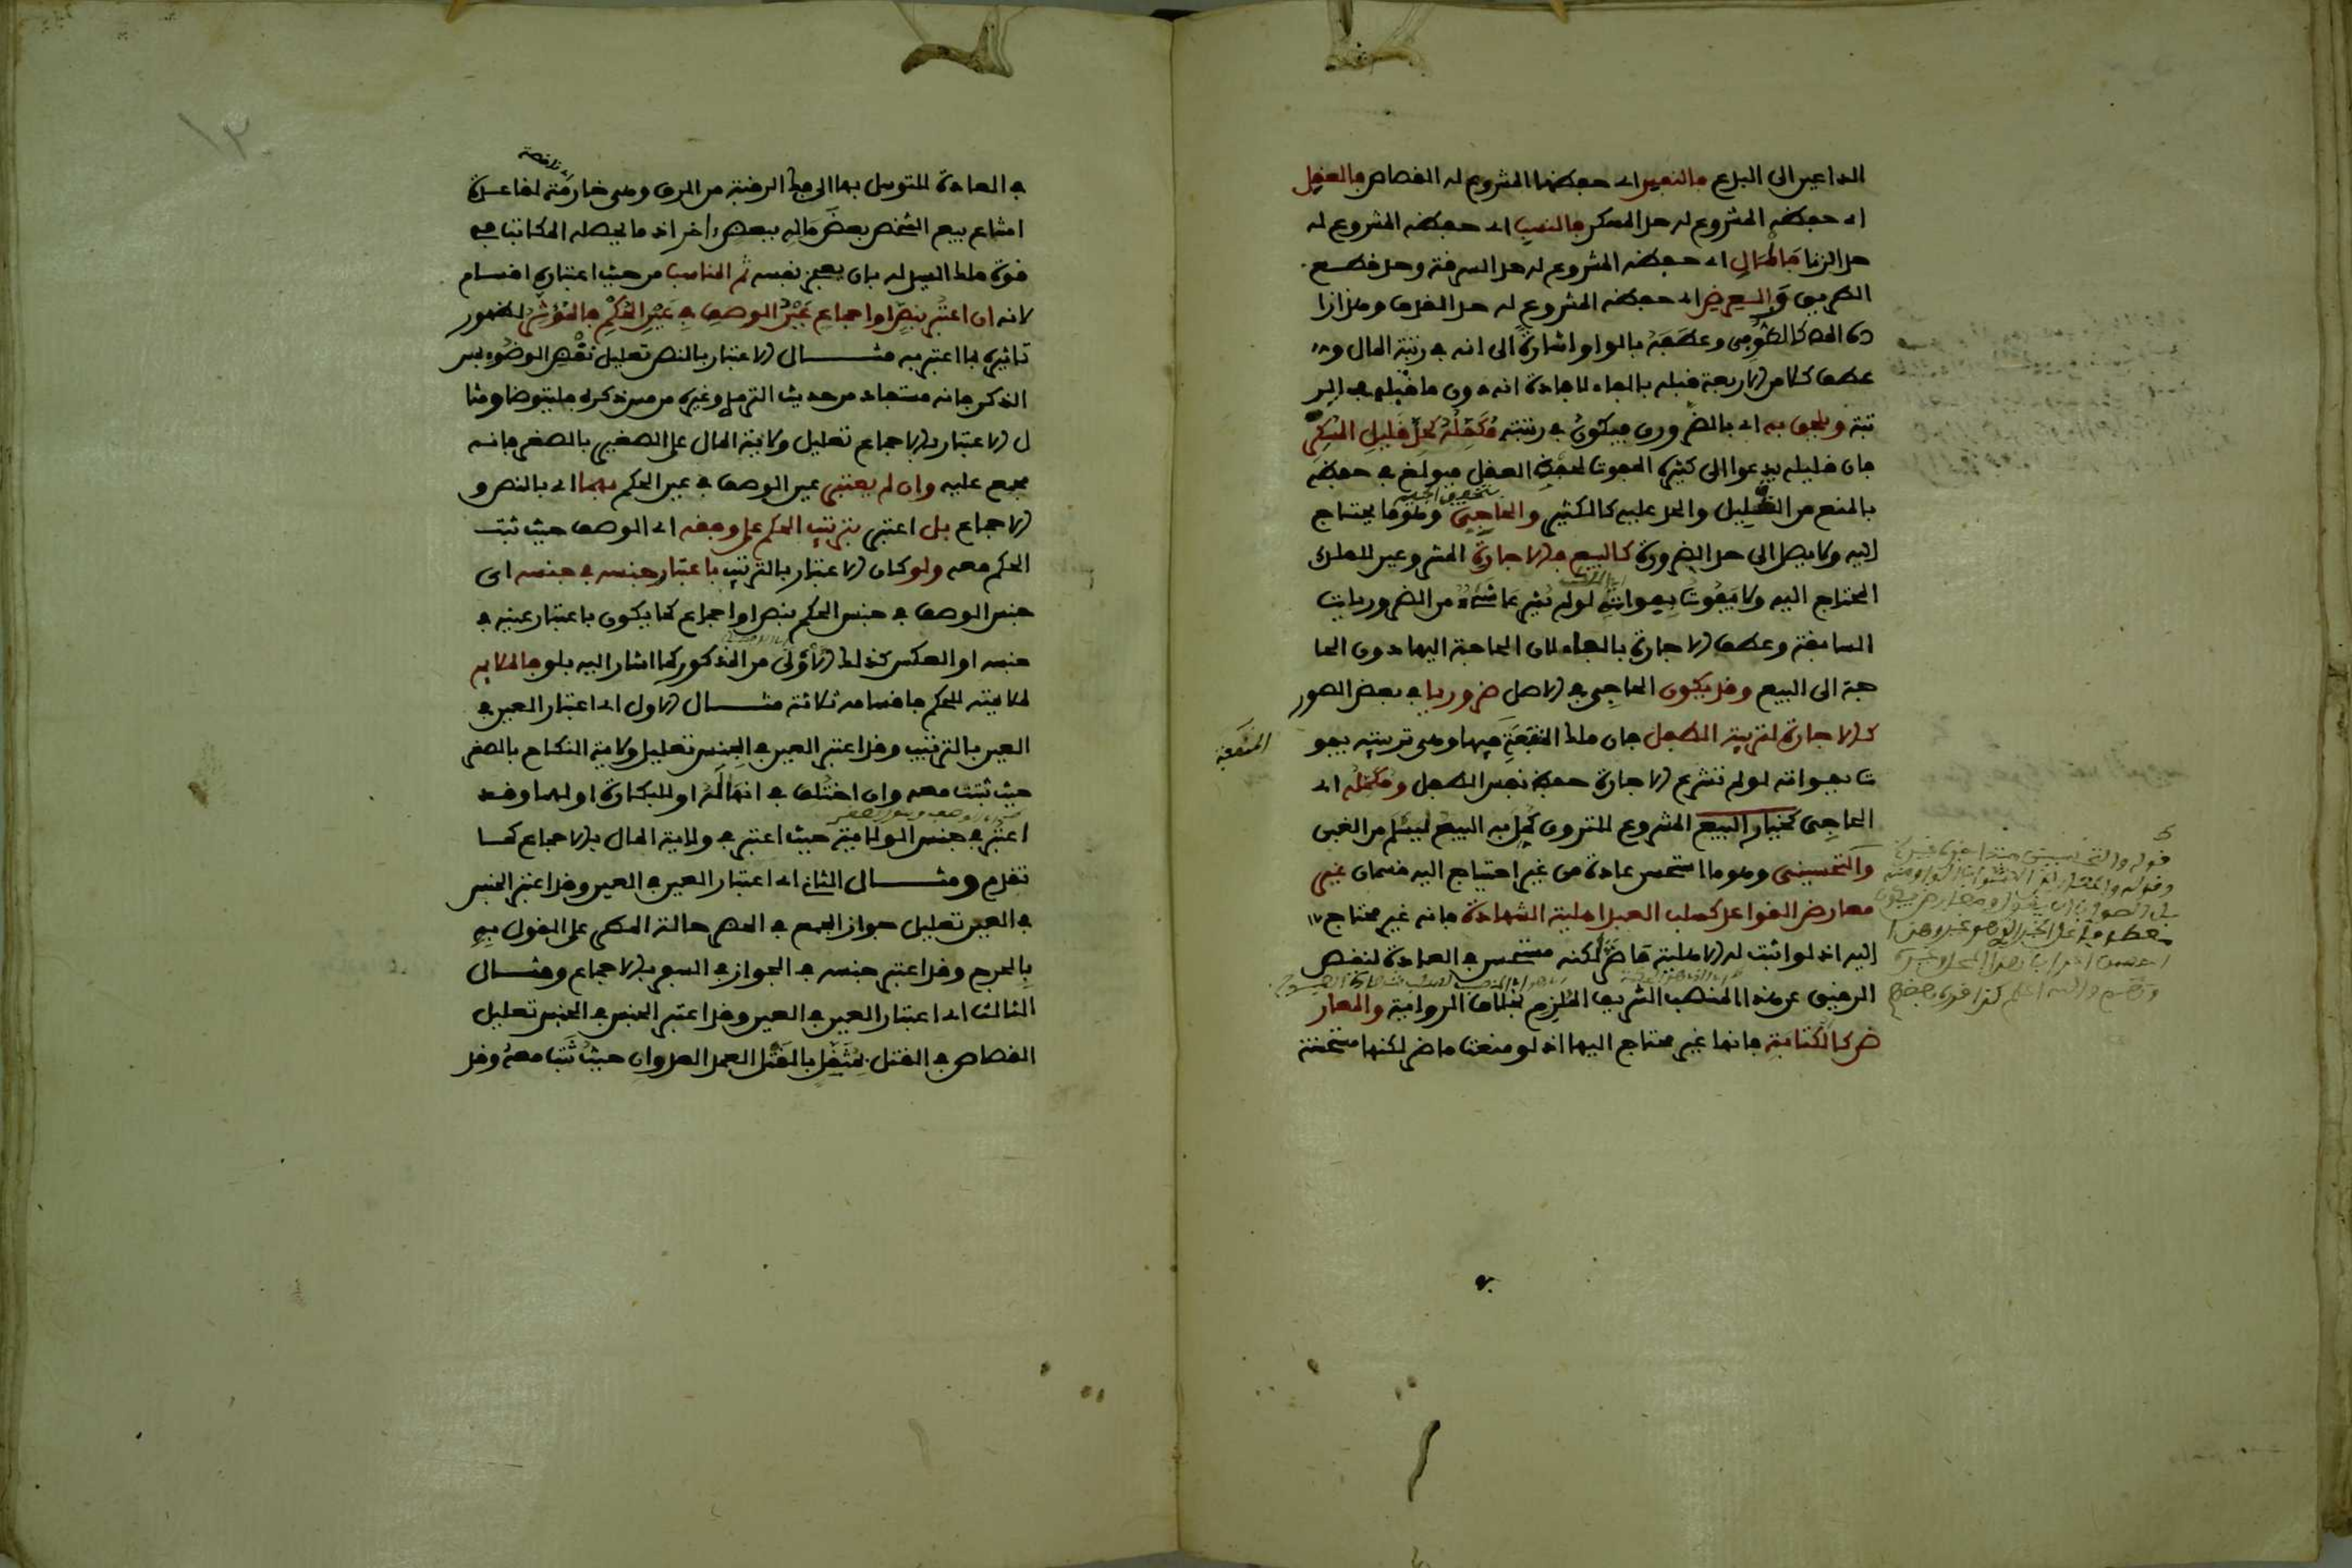 الداعين الى البدع فالنفس اي حفظها المشروع له القصاص فالعقل
اي حفظه المشروع له حد المسكر فالنسب اي حفظه المشروع له
حد الزنا فالمال اي حفظه المشروع له حد السرقة وحد قطع
الطريق والعرض اي حفظه المشروع له حد القذف وهذا زا
ده المص كالطوفي وعطفه بالواو اشارة الى انه في رتبة المال و
عطف كلا من الاربعة قبله بالفاء لافادة انه دون ما قبله في الر
تبة ويلحق به اي بالضروري فيكون في رتبته مكمله كحد قليل المسكر
فان قليله يدعوا الى كثيره المفوت لحفظ العقل فبولغ في حفظه
بالمنع من القليل والحد عليه كالكثير والحاجي وهو ما يحتاج
اليه ولا يصل الى حد الضرورة كالبيع فالاجارة المشروعين للملك
المحتاج اليه ولا يفوت بفواته لو لم يشرعا شيء من الضروريات
السابقة وعطف الاجارة بالفاء لان الحاجة اليها دون الحا
جة الى البيع وقد يكون الحاجي في الاصل ضروريا في بعض الصور
كالاجارة لتربية الطفل فان ملك المنفعة فيها وهي تربيته يفو
المنفعة
ت بفواته لو لم تشرع الاجارة حفظ نفس الطفل ومكمله اي
الحاجي كخيار البيع المشروع للتروي كمل به البيع ليسلم من الغبن
والتحسيني وهو ما استحسن عادة من غير احتياج اليه قسمان غير
معارض القواعد كسلب العبد اهلية الشهادة فانه غير محتاج
اليه اذ لو اثبت له الاهلية ما ضر لكنه مستحسن في العادة لنقص
الرقيق عن هذا المنصب الشريف الملزم بخلاف الرواية والمعار
ض كالكتابة فانها غير محتاج اليها اذ لو منعت ما ضر لكنها مستحسنة
في العادة للتوسل بها الى فك الرقبة من الرق وهي خارمة لقاعدة
اي ناقضة
امتناع بيع الشخص بعض ماله ببعض اخر اذ ما يحصله المكاتب في
قوة ملك السيد له بان يعجز نفسه ثم المناسب من حيث اعتباره اقسام
لانه ان اعتبر بنص او اجماع عين الوصف في عين الحكم فالمؤثر لظهور
تاثيره بما اعتبر به مثال الاعتبار بالنص تعليل نقض الوضوء بمس
الذكر فانه مستفاد من حديث الترمذي وغيره من مس ذكره فليتوضا ومثا
ل الاعتبار بالاجماع تعليل ولاية المال على الصغير بالصغر فانه
مجمع عليه وان لم يعتبر عين الوصف في عين الحكم بهما اي بالنص و
الاجماع بل اعتبر بترتيب الحكم على وفقه اي الوصف حيث ثبت
الحكم معه ولو كان الاعتبار بالترتيب باعتبار جنسه في جنسه اي
جنس الوصف في جنس الحكم بنص او اجماع كما يكون باعتبار عينه في
جنسه او العكس كذلك الاولى من المذكور كما اشار اليه بلو فالملايم
لملايمته للحكم فاقسامه ثلاثة مثال الاول اي اعتبار العين في
العين بالترتيب وقد اعتبر العين في الجنس تعليل ولاية النكاح بالصغر
حيث ثبتت معه وان اختلف في انها له او للبكارة او لهما وقد
اعتبر في جنس الولاية حيث اعتبر في ولاية المال بالاجماع كما
تقدم ومثال الثاني اي اعتبار العين في العين وقد اعتبر الجنس
في العين تعليل جواز الجمع في الحضر حالة المطر على القول به
بالحرج وقد اعتبر جنسه في الجواز في السفر بالاجماع ومثال
الثالث اي اعتبار العين في العين وقد اعتبر الجنس في الجنس تعليل
القصاص في القتل بمثقل بالقتل العمد العدوان حيث ثبت معه وقد
١٣